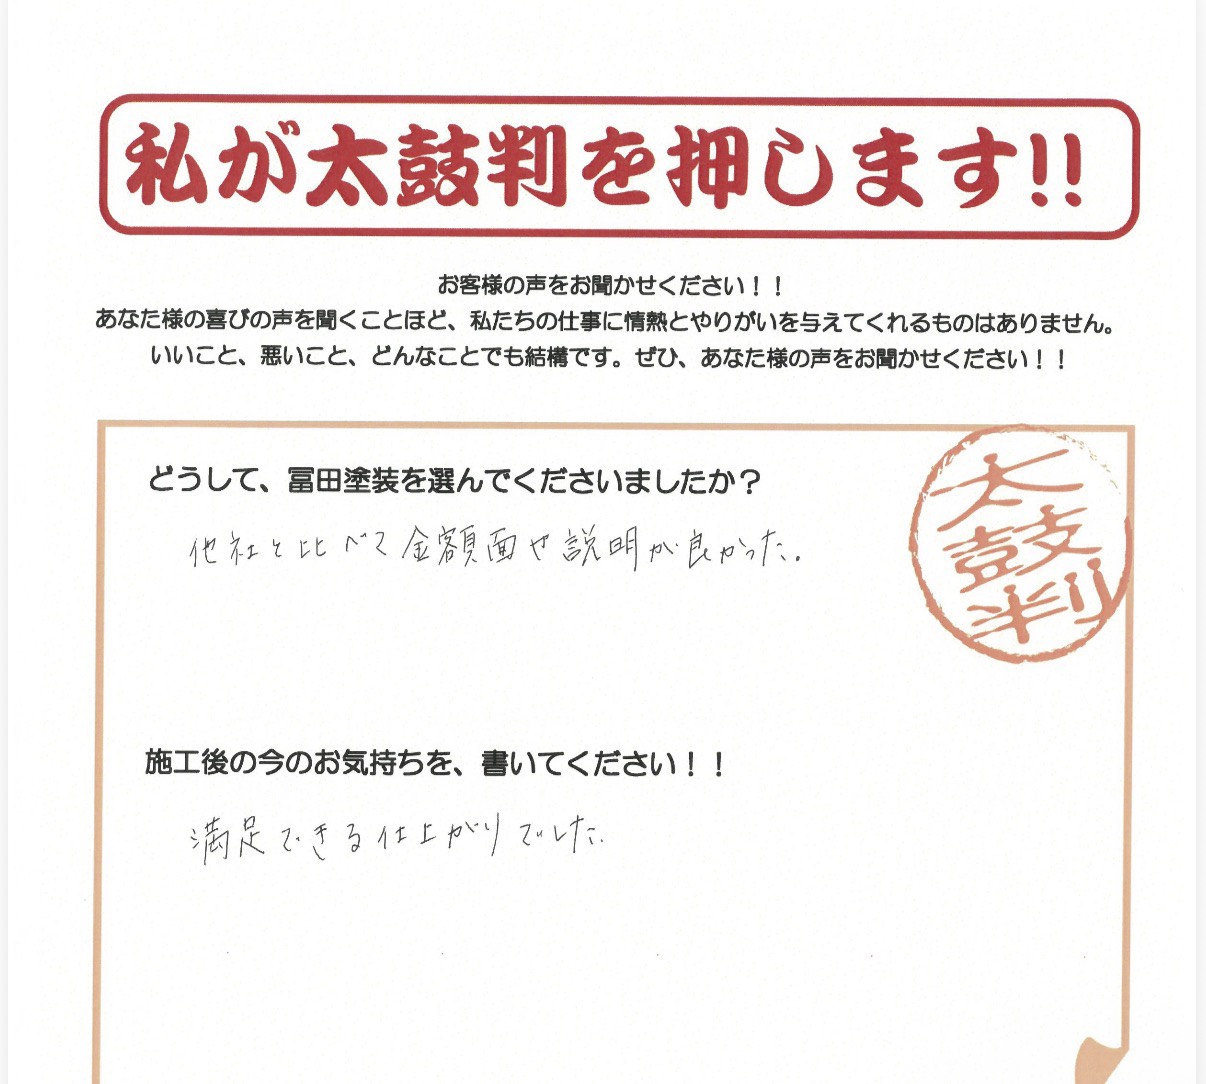 私が太鼓判を押します!!
お客様の声をお聞かせください！！
あなた様の喜びの声を聞くことほど、私たちの仕事に情熱とやりがいを与えてくれるものはありません。
いいこと、悪いこと、どんなことでも結構です。ぜひ、あなた様の声をお聞かせください！！
どうして、冨田塗装を選んでくださいましたか？
他社と比べて金額面や説明が良かった。
太
鼓
判
施工後の今のお気持ちを、書いてください！！
満足できる仕上がりでした。